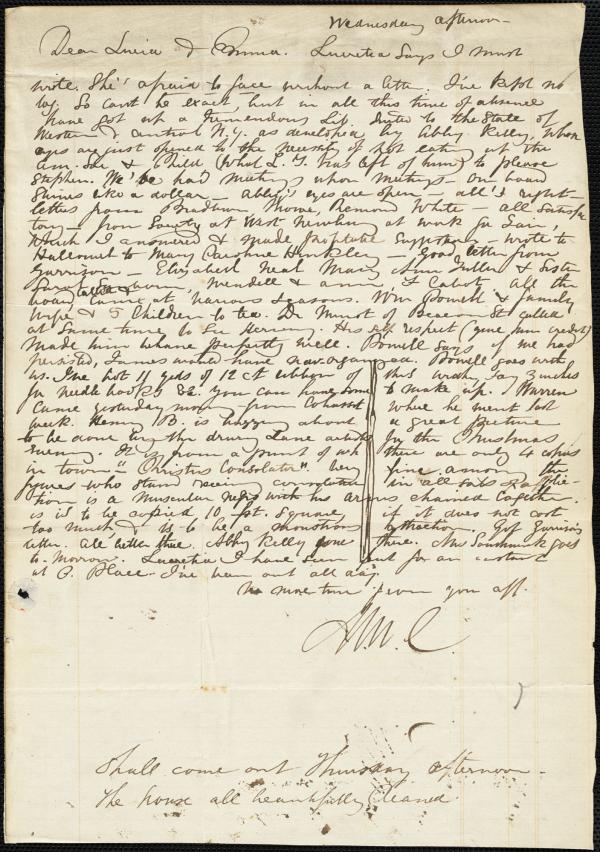 Wednesday afternoon
Dear Lucia & Emma. Lucretia says I must
write. She's afraid to face without a letter. I've kept no
log, so can't be exact, but in all this time of absence
have got up a tremendous Lib. to the State of
Western & central N.Y. as developed by Abby Kelley, whose
eyes are just opened to the necessity of not eating up the
Am. Soc. & Child (what L. T. has left of him) to please
Stephen. We've had meetings upon meetings. Our board
shines like a dollar — Abby's eyes are open — all's right —
letters from Bradburn, Remond White — all satisfac
tory — from Society at West Newbury at work for Fair,
which I answered & made supporters — wrote to
Hallowell to Mary Caroline Hinckley — Good letter from
Garrison — Elizabeth Neal Mary Ann Fuller & Sister
called & Wendell & Ann, F. Cabot, all the
board came at various seasons. Wm Powell & family
wife & 5 children to tea. Dr Minot of Beacon St called
at same time to see Henry. His self respect (give him credit)
made him behave perfectly well. Powell says if we had
persisted, James would have new-organized. Powell goes with
us. I've got 11 yds of 12 ct ribbon of this width, say 3 inches
for needle books &c. You can have some to make up. Warren
came yesterday morng from Cohasset where he went last
week. Henry B. is begging about a great picture
to be done by the drury Lane artists for the Christmas
Evening. It is from a print of wh there are only 4 copies
in town "Christus Consolator". Very fine. among the
figures who stand receiving consolation in all sorts
is a Muscular Negro with his arms chained together.
is to be copied 10 ft. square, if it does not cost
too much, & is to be a monstrous attraction. Got Garrison's
letter. All better there. Abby Kelley gone there. Mr
to-morrow. Lucretia & I have been out for an
at P. Place. I've been out all day.
No more time from your aff.
A.W.C.
Shall come out Thursday afternoon —
The house all beautifully cleaned